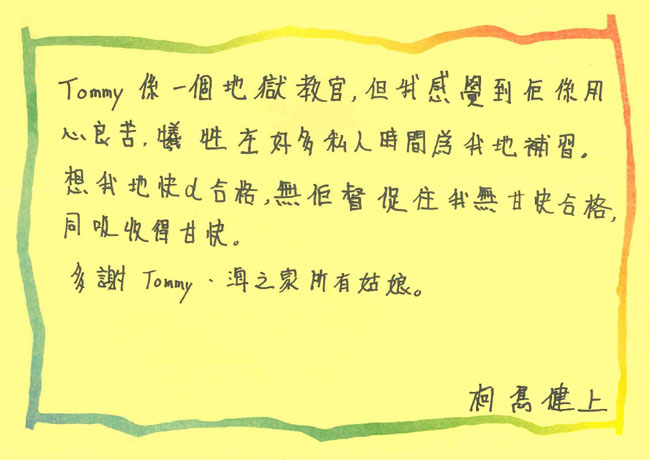 Tommy 係一個地獄教官,但我感覺到佢係用
心良苦,犧牲左好多私人時間為我地補習。
想我地快d合格,無佢督促住我無甘快合格,
同吸收得甘快。
多謝 Tommy、海之家所有姑娘。
柯喬健上